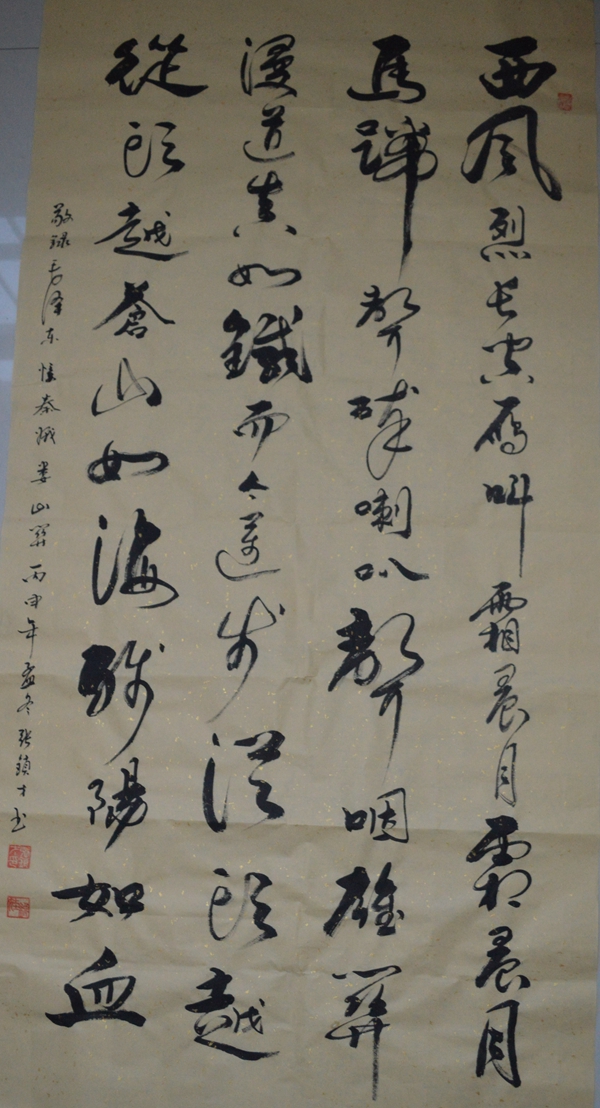 西风烈长空雁叫霜晨月霜晨月
馬蹄聲碎喇叭聲咽雄關
漫道真如鐵而今邁步從頭越
從頭越蒼山如海殘陽如血
敬録毛澤东憶秦娥婁山関丙申年孟冬張鎮才书